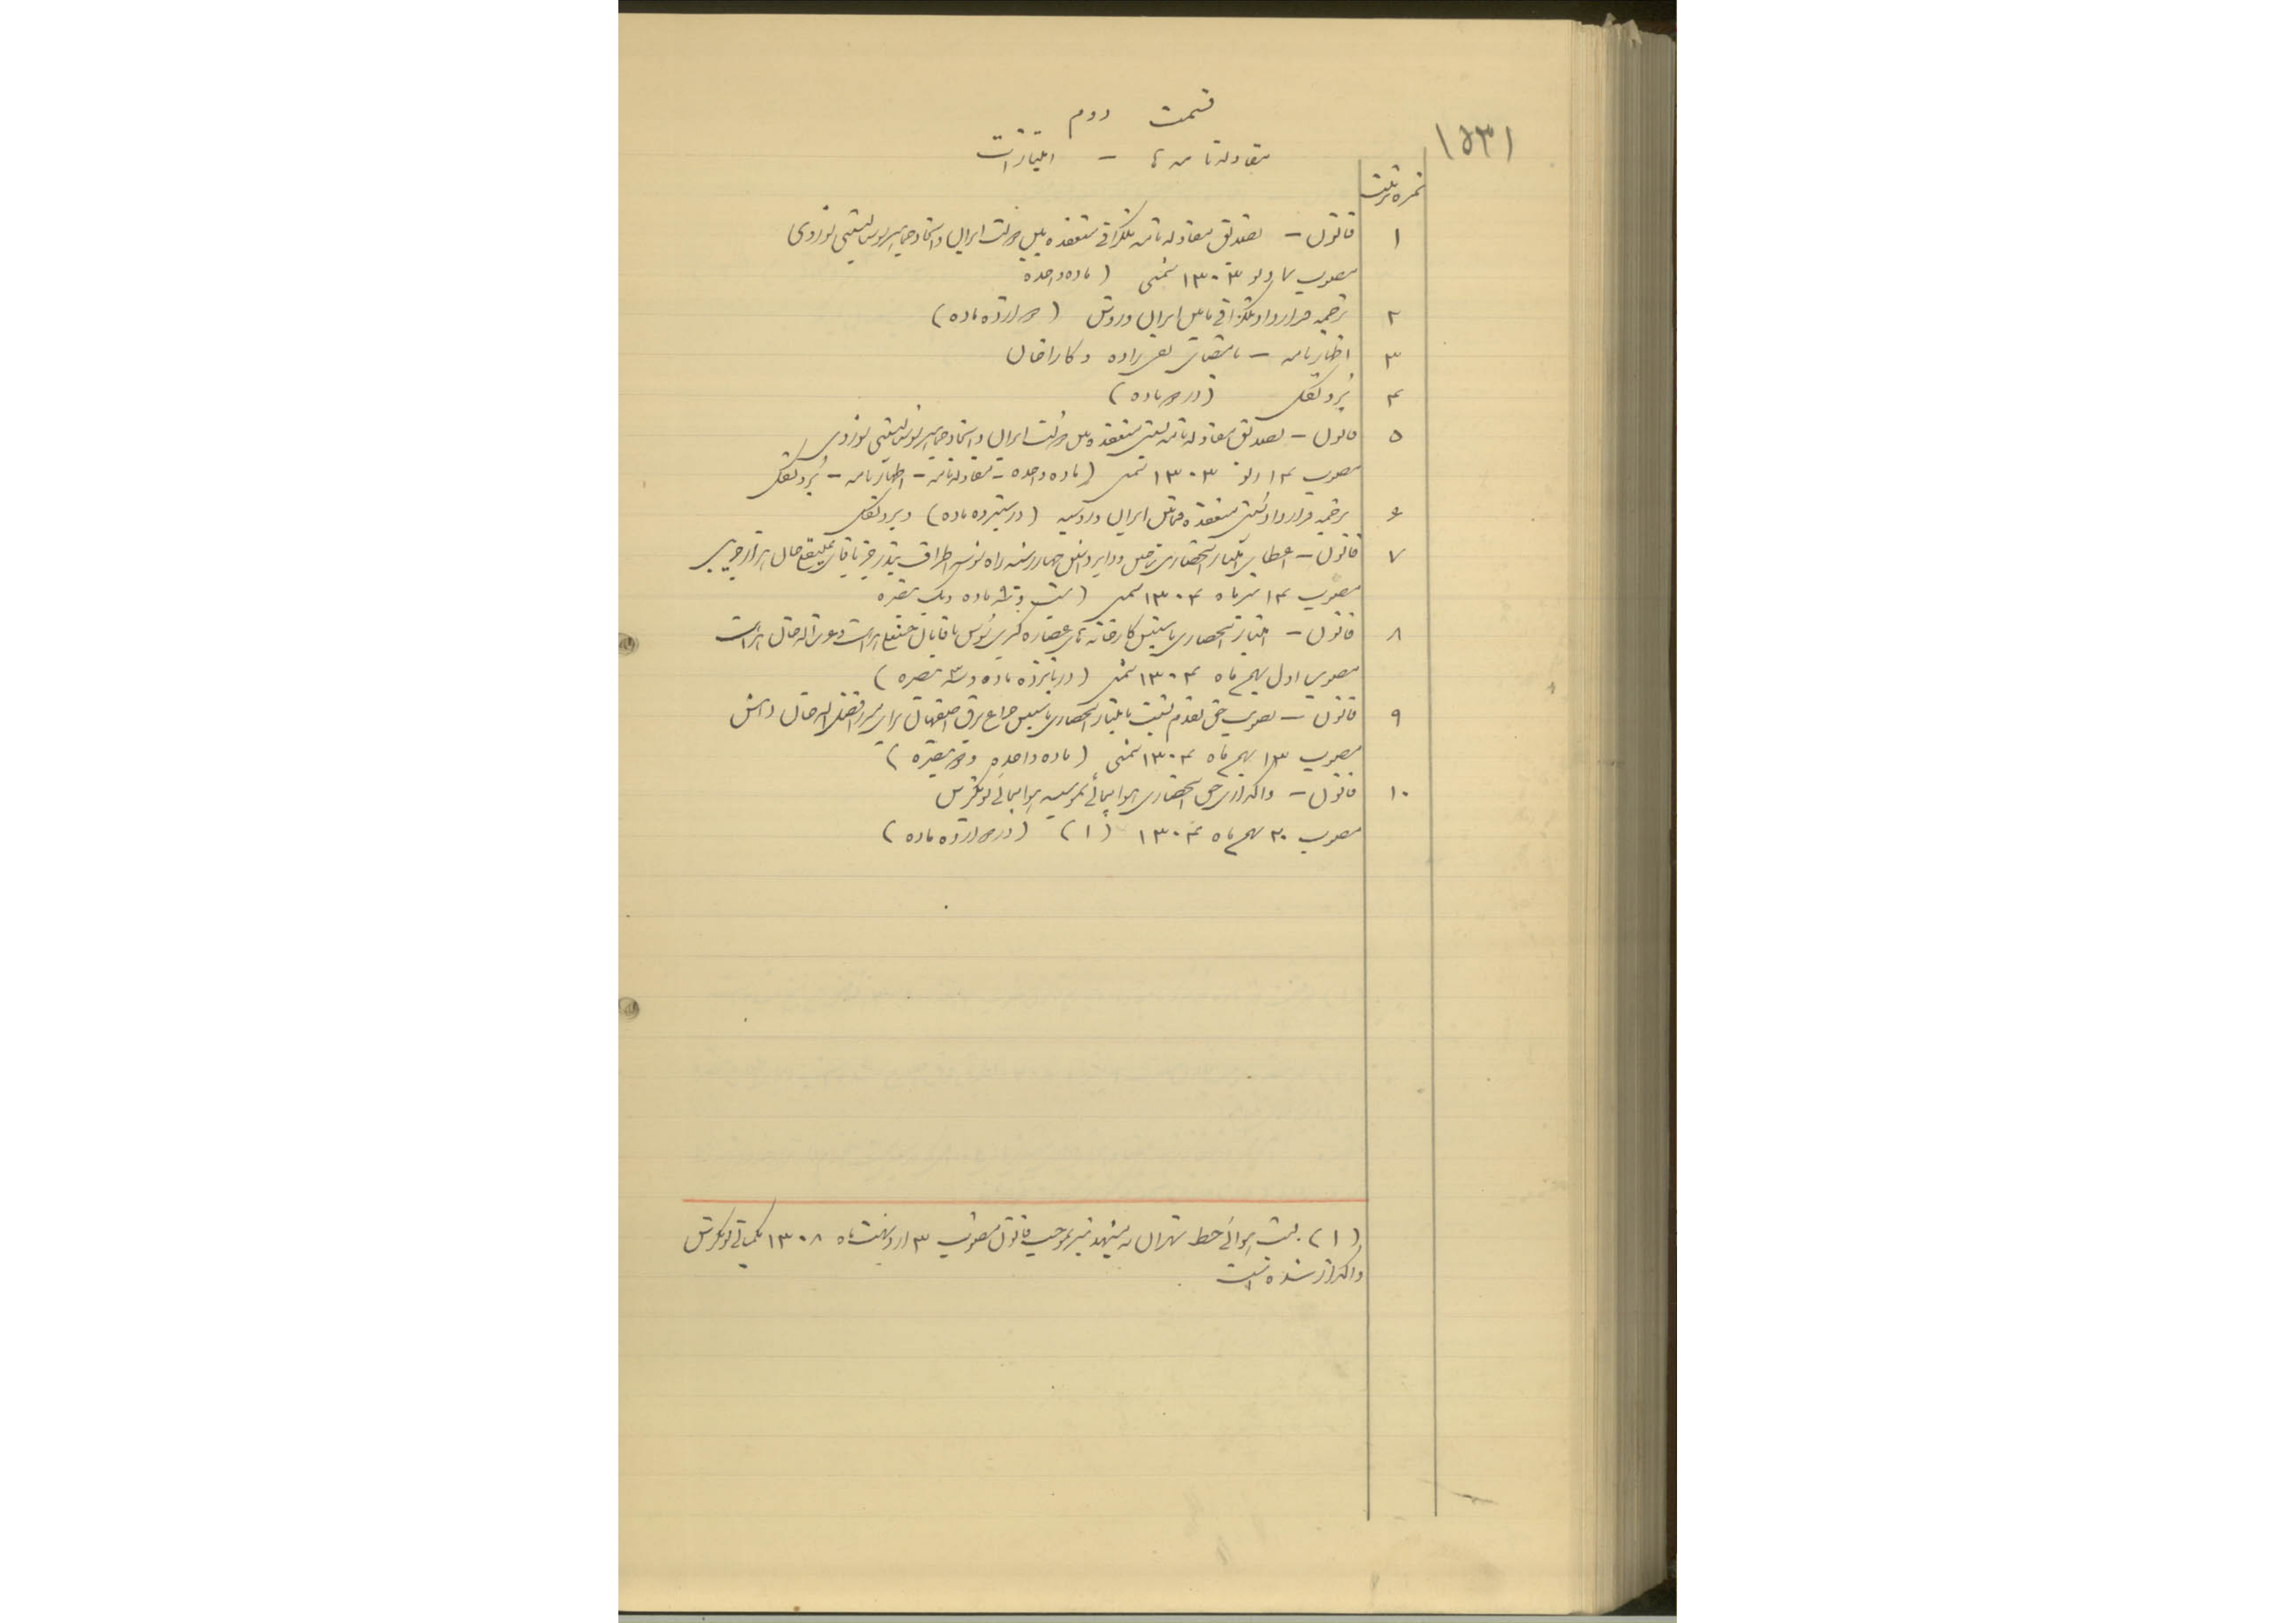 ۱۵۳۱
قسمت دوم
مقاوله نامه ها – امتیازات
نمره ترتیب
۱ قانون – تصدیق مقاوله نامه تلگرافی منعقده بین دولت ایران و اتحاد جماهیر سوسیالیستی شوروی
مصوب دلو ۱۳۰۳ شمسی (ماده واحده
۲ ترجمه قرارداد تلگرافی مابین ایران و روس (دوازده ماده)
۳ اظهارنامه – بامضای تقی زاده و کاراخان
۴ پروتکل (در دو ماده)
۵ قانون – تصدیق مقاوله نامه پستی منعقده بین دولت ایران و اتحاد جماهیر سوسیالیستی شوروی
مصوب ۱۴ دلو ۱۳۰۳ شمسی (ماده واحده – مقاوله نامه – اظهارنامه – پروتکل
۶ ترجمه قرارداد پستی منعقده مابین ایران و روسیه (در سیزده ماده) و پروتکل
۷ قانون – اعطای امتیاز انحصاری و دایر داشتن راه شوسه اطراف بندر جز بآقای خان
مصوب ۱۴ تیر ماه ۱۳۰۴ شمسی (بیست و نه ماده و یک تبصره
۸ قانون – امتیاز انحصاری تأسیس کارخانه های عصاره گیری سوس بآقایان و عزت اله خان هدایت
مصوب اول بهمن ماه ۱۳۰۴ شمسی (در پانزده ماده و سه تبصره)
۹ قانون – تصویب حق تقدم نسبت بامتیاز انحصاری تأسیس چراغ برق اصفهان برای میرزا فضل اله خان دانش
مصوب ۱۳ بهمن ماه ۱۳۰۴ شمسی (ماده واحده و دو تبصره)
۱۰ قانون – واگذاری حق انحصاری هواپیمائی بموسسه هواپیمائی یونکرس
مصوب ۲۰ بهمن ماه ۱۳۰۴ (۱) (در دوازده ماده)
(۱) پست هوائی خط تهران به مشهد نیز بموجب قانون مصوب ۳ اردیبهشت ماه ۱۳۰۸ بکمپانی یونکرس
واگذار شده است